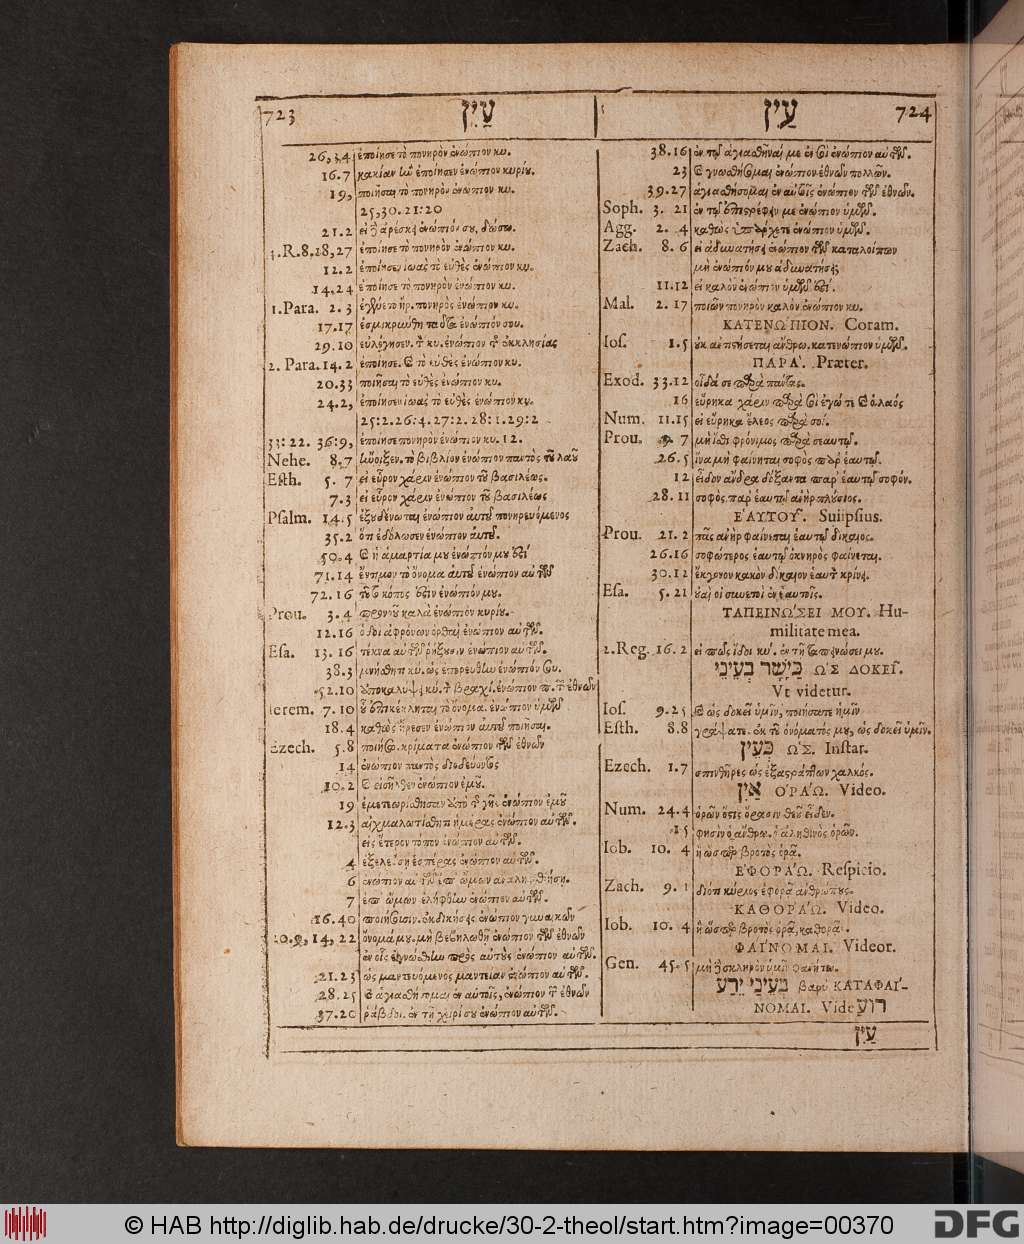 723 עַיִן עַיִן 724
26,34 ἐποίησε τὸ πονηρὸν ἐνώπιον κυ.
16.7 κακίαν ἣν ἐποίησεν ἐνώπιον κυρίου.
19, ποιῆσαι τὸ πονηρὸν ἐνώπιον κυ.
25,30. 21:20
21.2 εἰ ἀρέσκει ἐνώπιόν σου, δώσω.
3.R.8.18,27 ἐποίησε τὸ πονηρὸν ἐνώπιον κυ.
12.2 ἐποίησεν ἰωὰς τὸ εὐθὲς ἐνώπιον κυ.
14,24 ἐποίησε τὸ πονηρὸν ἐνώπιον κυ.
1.Para. 2.3 πονηρὸς ἐνώπιον κυ.
17.17 ἐσμικρύνθη ταῦτα ἐνώπιόν σου.
29.10 εὐλόγησεν τὸν κυ. ἐνώπιον τῆς ἐκκλησίας
2. Para. 14.2 ἐποίησε καὶ τὸ εὐθὲς ἐνώπιον κυ.
20.33 ποιῆσαι τὸ εὐθὲς ἐνώπιον κυ.
24.2, ἐποίησεν ἰωας τὸ εὐθὲς ἐνώπιον κυ.
25:2.26:4.27:2.28:1.29:2
33:22. 36:9, ἐποίησε πονηρὸν ἐνώπιον κυ. 12.
Nehe. 8.7 ἤνοιξεν τὸ βιβλίον ἐνώπιον παντὸς τοῦ λαοῦ
Esth. 5. 7 εἰ εὗρον χάριν ἐνώπιον τοῦ βασιλέως.
7.3 εἰ εὗρον χάριν ἐνώπιον τοῦ βασιλέως
Psalm. 14.5 ἐξουδένωται ἐνώπιον αὐτοῦ πονηρευόμενος
35.2 ὅτι ἐδόλωσεν ἐνώπιον αὐτοῦ.
50.4 καὶ ἡ ἁμαρτία μου ἐνώπιόν μου ἐστί
71.14 ἔντιμον τὸ ὄνομα αὐτοῦ ἐνώπιον αὐτῶν
72.16 τοῦτο κόπος ἐστὶν ἐνώπιόν μου.
Prou. 3.4 προνοοῦ καλὰ ἐνώπιον κυρίου.
12.16 ὁδοὶ ἀφρόνων ὀρθαὶ ἐνώπιον αὐτῶν.
Esa. 13.16 τέκνα αὐτῶν ῥήξουσιν ἐνώπιον αὐτῶν.
38.3 μνήσθητι κυ. ὡς ἐπορεύθην ἐνώπιόν σου.
52.10 ἀποκαλύψει κύ. τὸν βραχί. ἐνώπιον π. τῶν ἐθνῶν
Ierem. 7.10 οὗ ἐπικέκληται τὸ ὄνομα. ἐνώπιον ὑμῶν
18.4 καθὼς ἤρεσεν ἐνώπιον αὐτοῦ ποιῆσαι.
Ezech. 5.8 ποιήσω. κρίματα ἐνώπιον τῶν ἐθνῶν
14 ἐνώπιον παντὸς διοδεύοντος
10.2 καὶ εἰσῆλθεν ἐνώπιον ἐμοῦ.
19 ἐμετεωρίσθησαν ἀπὸ τῆς γῆς ἐνώπιον ἐμοῦ
12.3 αἰχμαλωτίσθητι ἡμέρας ἐνώπιον αὐτῶν.
εἰς ἕτερον τόπον ἐνώπιον αὐτῶν.
4 ἐξελεύσῃ ἑσπέρας ἐνώπιον αὐτῶν.
6 ἐνώπιον αὐτῶν ἐπ' ὤμων ἀναληφθήσῃ.
7 ἐπ' ὤμων ἐλήφθην ἐνώπιον αὐτῶν.
16.40 ποιήσουσιν. ἐκδικήσεις ἐνώπιον γυναικῶν
20.9, 14, 22 ὄνομά μου. μὴ βεβηλωθῇ ἐνώπιον τῶν ἐθνῶν
ἐν οἷς ἐγνώσθην πρὸς αὐτοὺς ἐνώπιον αὐτῶν.
21.23 ὡς μαντευόμενος μαντείαν ἐνώπιον αὐτῶν.
28.25 καὶ ἁγιασθήσομαι ἐν αὐτοῖς, ἐνώπιον τῶν ἐθνῶν
37.20 ῥάβδοι. ἐν τῇ χειρί σου ἐνώπιον αὐτῶν.
38.16 ἐν τῷ ἁγιασθῆναί με ἐν σοὶ ἐνώπιον αὐτῶν.
23 καὶ γνωσθήσομαι ἐνώπιον ἐθνῶν πολλῶν.
39.27 ἁγιασθήσομαι ἐν αὐτοῖς ἐνώπιον τῶν ἐθνῶν.
Soph. 3. 21 ἐν τῷ ἐπιστρέφειν με ἐνώπιον ὑμῶν.
Agg. 2. 4 καθὼς ὑπάρχοντα ἐνώπιον ὑμῶν.
Zach. 8. 6 εἰ ἀδυνατήσει ἐνώπιον τῶν καταλοίπων
μὴ ἐνώπιόν μου ἀδυνατήσει;
11.12 εἰ καλὸν ἐνώπιον ὑμῶν ἐστί.
Mal. 2. 17 ποιῶν πονηρὸν καλὸν ἐνώπιον κυ.
ΚΑΤΕΝΩΠΙΟΝ. Coram.
Ios. 1.5 οὐκ ἀντιστήσεται ἄνθρω. κατενώπιον ὑμῶν.
ΠΑΡΑ'. Præter.
Exod. 33.12 οἶδά σε παρὰ πάντας.
16 εὕρηκα χάριν παρὰ σοὶ ἐγώ τε καὶ ὁ λαός
Num. 11.15 εἰ εὕρηκα ἔλεος παρὰ σοί.
Prou. 3. 7 μὴ ἴσθι φρόνιμος παρὰ σεαυτῷ.
26.5 ἵνα μὴ φαίνηται σοφὸς παρ' ἑαυτῷ.
12 εἶδον ἄνδρα δόξαντα παρ' ἑαυτῷ σοφόν.
28.11 σοφὸς παρ' ἑαυτῷ ἀνὴρ πλούσιος.
Ε'ΑΥΤΟΥ͂. Suiipsius.
Prou. 21.2 πᾶς ἀνὴρ φαίνεται ἑαυτῷ δίκαιος.
26.16 σοφώτερος ἑαυτῷ ὀκνηρὸς φαίνεται.
30.12 ἔκγονον κακὸν δίκαιον ἑαυτὸν κρίνει.
Esa. 5.21 οὐαὶ οἱ συνετοὶ ἐν ἑαυτοῖς.
ΤΑΠΕΙΝΩ'ΣΕΙ ΜΟΥ. Hu-
militate mea.
2.Reg. 16.2 εἴ πως ἴδοι κύ. ἐν τῇ ταπεινώσει μου.
כַּיָּשָׁר בְּעֵינֵי Ω'Σ ΔΟΚΕΙ͂.
Vt videtur.
Ios. 9.25 καὶ ὡς δοκεῖ ὑμῖν, ποιήσατε ἡμῖν
Esth. 8.8 γράψατε. ἐκ τοῦ ὀνόματός μου, ὡς δοκεῖ ὑμῖν.
כְּעֵין Ω'Σ. Instar.
Ezech. 1.7 σπινθῆρες ὡς ἐξαστράπτων χαλκός.
עַיִן Ο'ΡΑ'Ω. Video.
Num. 24.4 ὁρῶν ὅστις ὅρασιν θεοῦ εἶδεν.
15 φησὶν ὁ ἄνθρω. ὁ ἀληθινὸς ὁρῶν.
Iob. 10. 4 ἢ ὥσπερ βροτὸς ὁρᾷ.
Ε'ΦΟΡΑ'Ω. Respicio.
Zach. 9. 1 διότι κύριος ἐφορᾷ ἀνθρώπους.
ΚΑΘΟΡΑ'Ω. Video.
Iob. 10. 4 ἢ ὥσπερ βροτὸς ὁρᾷ, καθορᾷ.
ΦΑΙ'ΝΟΜΑΙ. Videor.
Gen. 45.5 μὴ σκληρὸν ὑμῖν φανήτω.
בְּעֵינַי יֵרַע βαρὺ ΚΑΤΑΦΑΙ'-
ΝΟΜΑΙ. Vide רוע
עַיִן
© HAB http://diglib.hab.de/drucke/30-2-theol/start.htm?image=00370 DFG